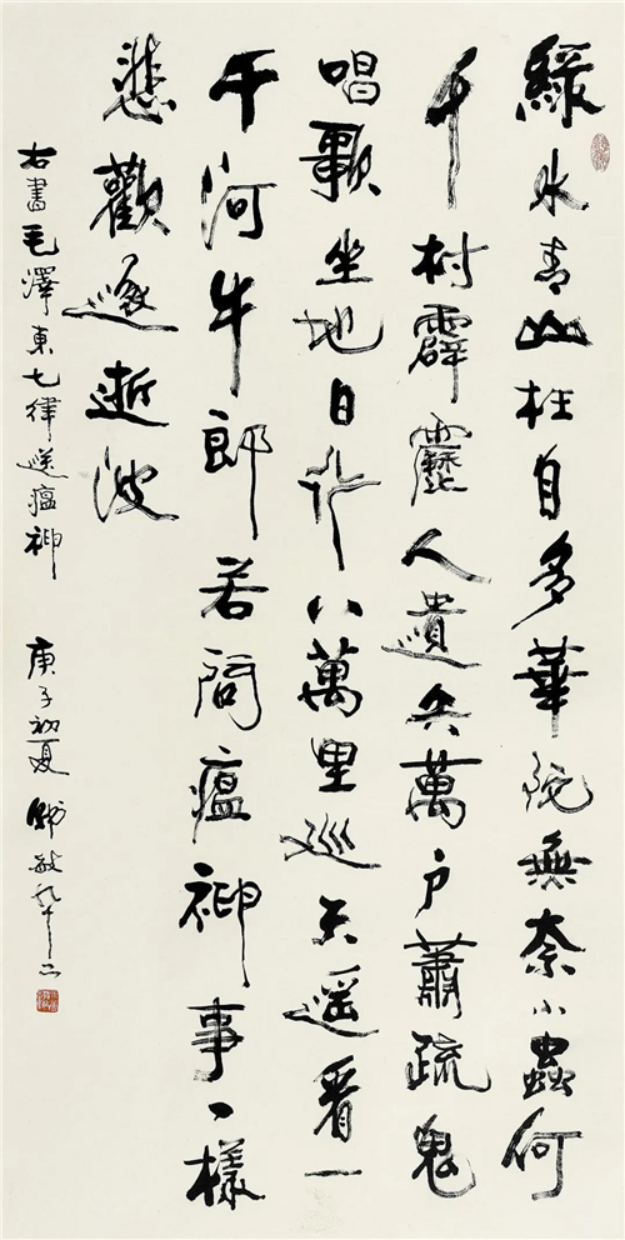 綠水青山枉自多華陀無奈小蟲何
千村霹靂人遺矢萬戶蕭疏鬼
唱歌坐地日行八萬里巡天遙看一
千河牛郎若問瘟神事一樣
悲歡逐逝波
右書毛澤東七律送瘟神 庚子初夏 韓敏九十二